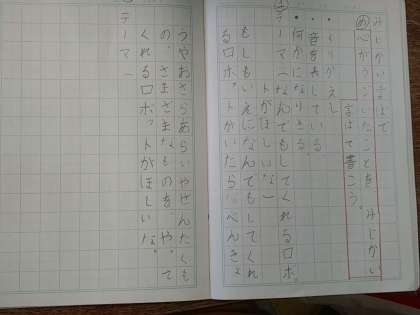 みじかい言ばで
めべんきょうしたことを みじかい
言ばで書こう。
・くりかえし
・音をあらわしている
・何かになりきる
テーマ(なんでもしてくれるロボ
ットがほしいな)
もしもいえになんでもしてくれ
るロボットがいたらべんきょ
うやおさらあらいやせんたくも
の、さまざまなものをやって
くれるロボットがほしいな。
テーマ(